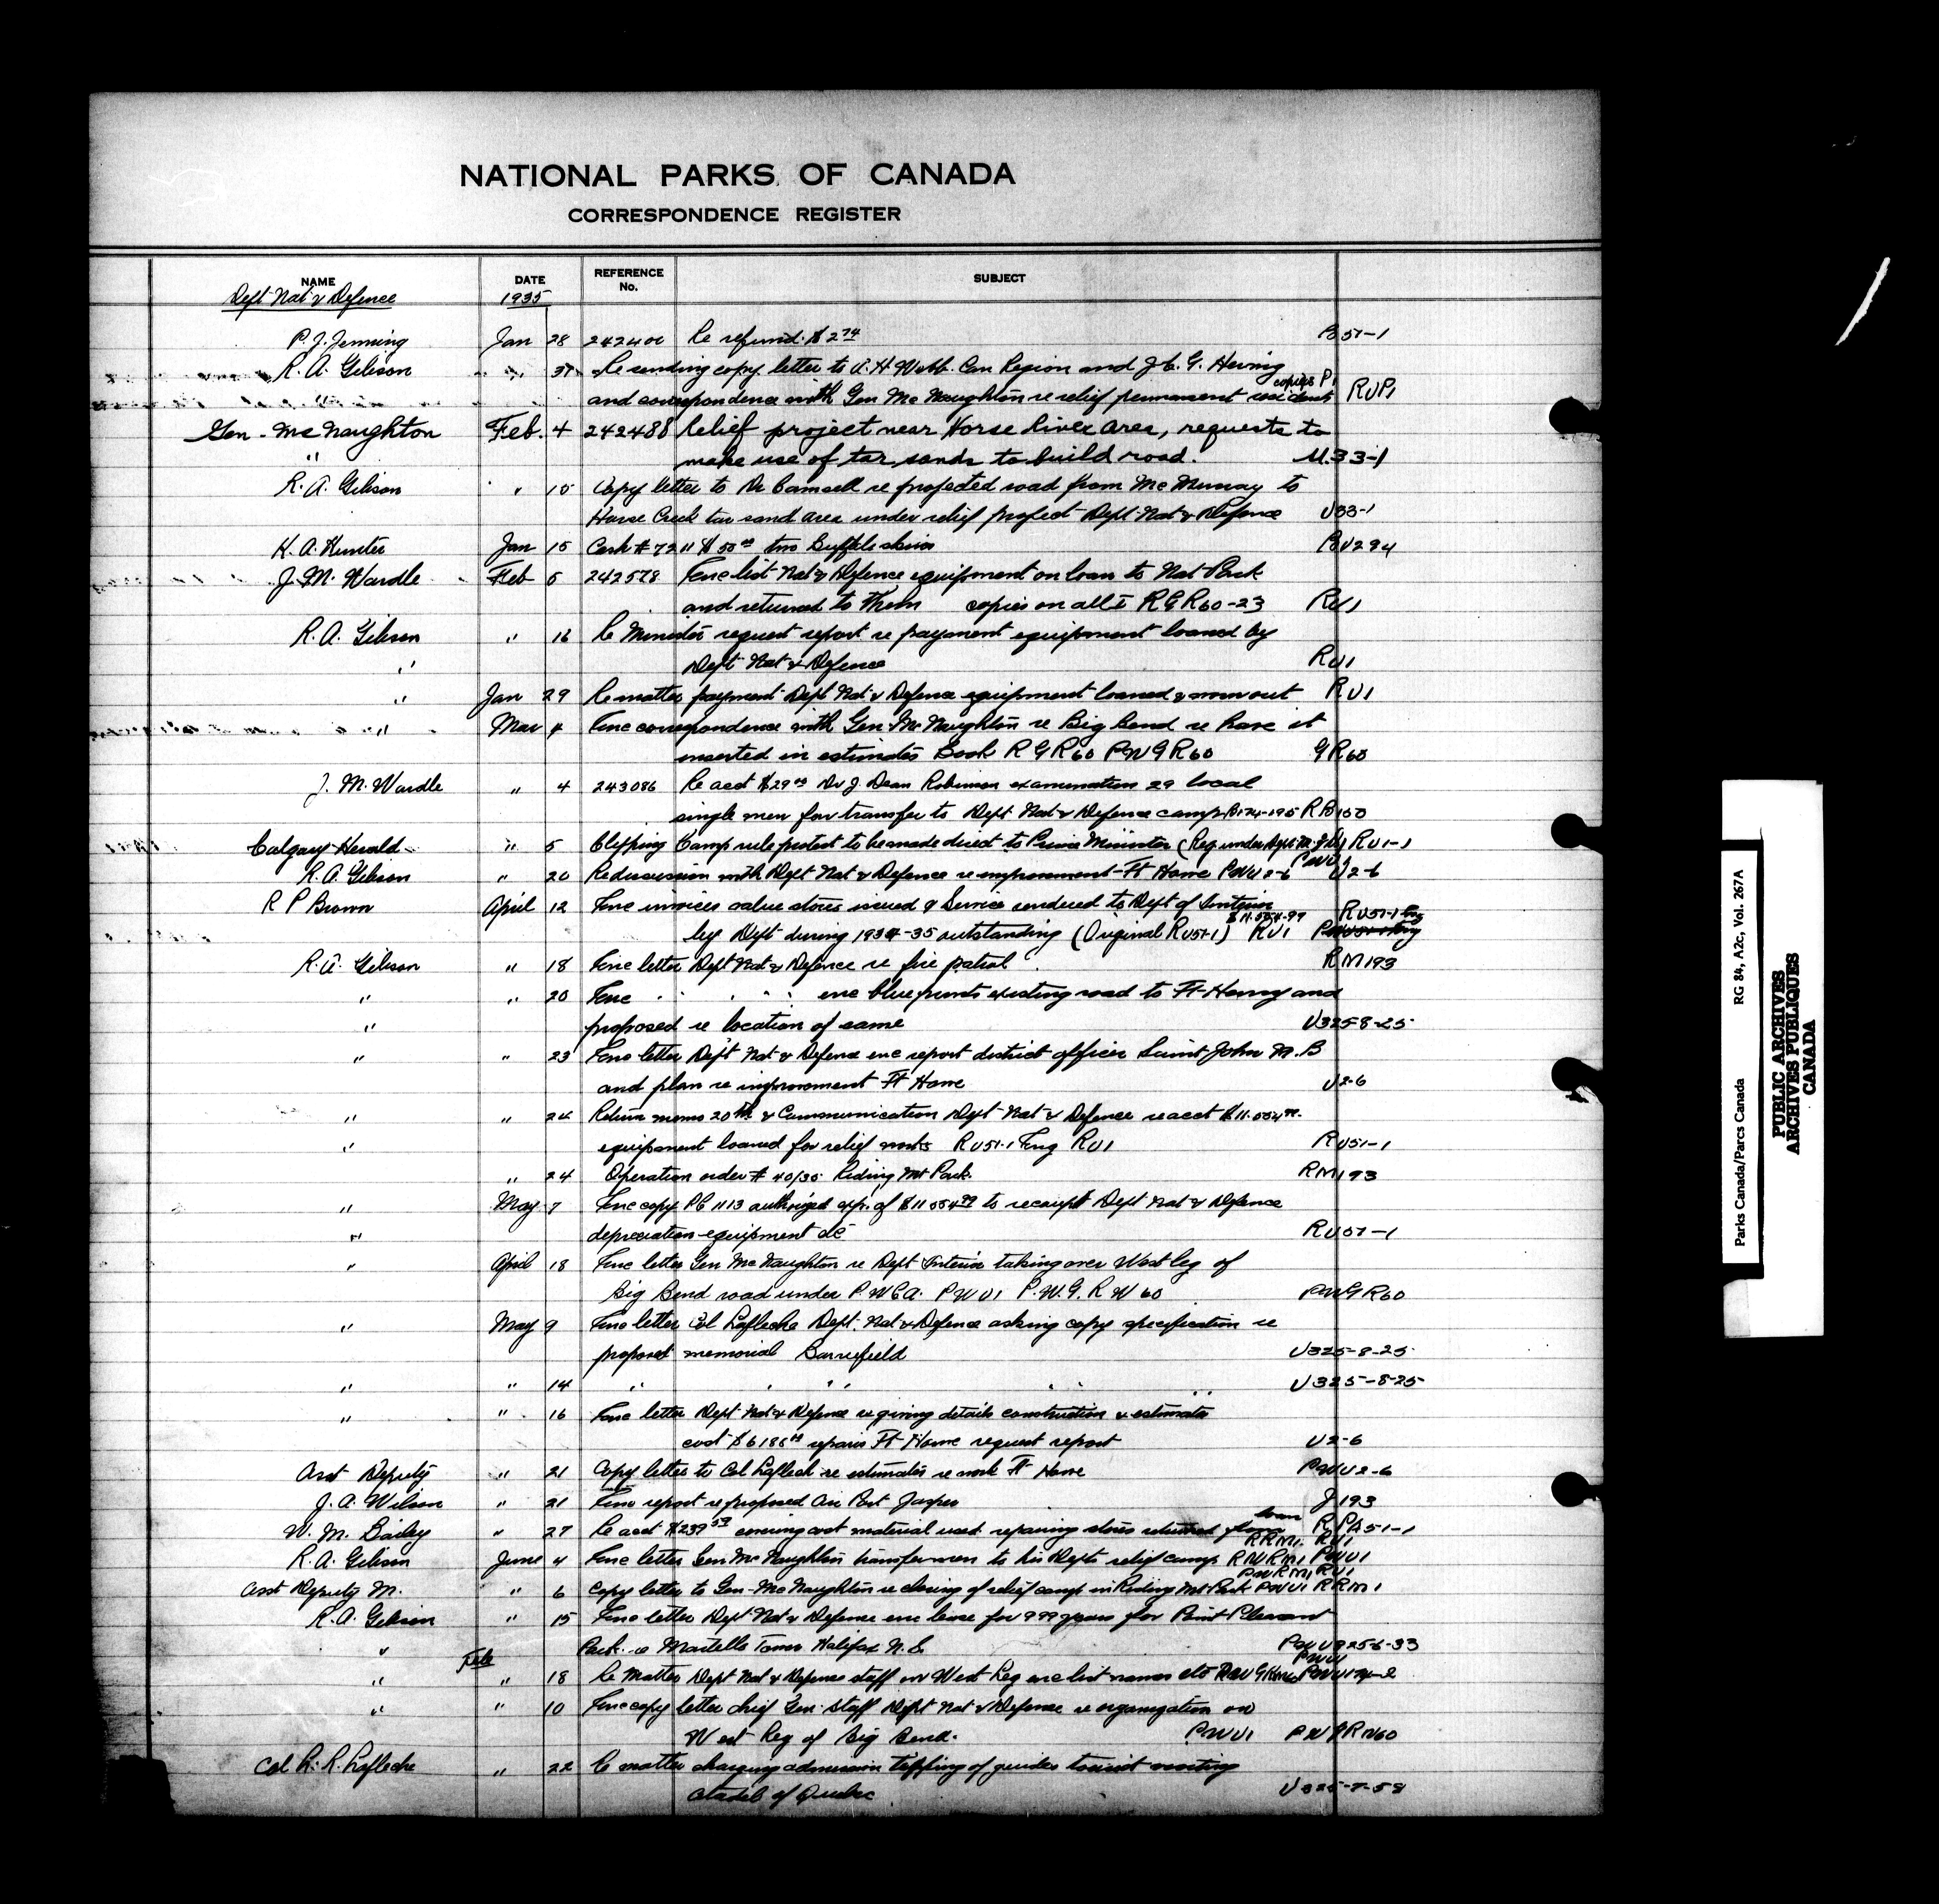 NATIONAL PARKS OF CANADA
CORRESPONDENCE REGISTER
NAME DATE REFERENCE No. SUBJECT
Dept Nat'l Defence 1935
P. J. Jenning Jan 28 Re refund. $2 74 51-1
R. A. Gibson " 31 Re sending copy letter to A. H. Webb. Can Region and
" and correspondence with Gen McNaughton re relief permanent residents copies RUP1
Gen. McNaughton Feb. 4 242488 Relief project near Horse River area, requests to
" make use of tar sands to build road. U.33-1
R. A. Gibson " 15 Copy letter to Dr Camsell re projected road from McMurray to
Horse Creek tar sand area under relief project Dept Nat'l Defence U33-1
H. A. Hunter Jan 15 Cash # 7211 $50 00 two Buffalo skins BU294
J. M. Wardle Feb 5 242578 Enc list Nat'l Defence equipment on loan to Nat Park
and returned to them copies on all RGR60-23 RU1
R. A. Gibson " 16 Re Minister request report re payment equipment loaned by
" Dept Nat'l Defence RU1
" Jan 29 Re matter payment Dept Nat'l Defence equipment loaned & worn out RU1
" Mar 4 Enc correspondence with Gen McNaughton re Big Bend re have it
inserted in estimates Book RGR60 PWGR60 GR60
J. M. Wardle " 4 243086 Re acct $29 00 Dr J. Dean Robinson examination 29 local
single men for transfer to Dept Nat'l Defence camp B174-195 RB150
Calgary Herald " 5 Clipping Camp rule protest to be made direct to Prime Minister (Reg under Dept RU1-1
R. A. Gibson " 20 Re discussion with Dept Nat'l Defence re improvement Ft Howe PWU2-6 PWU1 U2-6
R P Brown April 12 Enc invoices value stores issued & Service rendered to Dept of Interior RU51-1 Eng
by Dept during 1934-35 outstanding (Original RU51-1) $11.554.99 RU1 PWU51-1 Eng
R. A. Gibson " 18 Enc letter Dept Nat'l Defence re fire patrol RM193
" " 20 Enc " " " " enc blue prints existing road to Ft Henry and
" proposed re location of same U325-8-25
" " 23 Enc letter Dept Nat'l Defence enc report district officer Saint John N.B
and plan re improvement Ft Howe U2-6
" " 24 Return memo 20th & Communication Dept Nat'l Defence re acct $11.554 99.
" equipment loaned for relief works RU51-1 Eng RU1 RU51-1
" 24 Operation order # 40/35 Riding Mt Park. RM193
" May 7 Enc copy PC 1113 authorized of $11554 99 to recoupt Dept Nat'l Defence
" depreciation equipment etc RU51-1
" April 18 Enc letter Gen McNaughton re Dept Interior taking over West leg of
Big Bend road under P.W.C.A. PWU1 P.W.G.RW60 PWGR60
" May 9 Enc letter Col Lafleche Dept. Nat'l Defence asking copy specification re
proposed memorial Barriefield U325-8-25
" " 14 " " " " " " U325-8-25
" " 16 Enc letter Dept Nat'l Defence re giving details construction & estimate
cost $6186 00 repairs Ft Howe request report U2-6
Asst Deputy " 21 Copy letter to Col Laflech re estimates re work Ft Howe PWU2-6
J. A. Wilson " 21 Enc report re proposed Air Port Jasper J193
W. M. Bailey " 27 Re acct covering cost material used repairing stores returned loan 51-1
R. A. Gibson June 4 Enc letter Gen McNaughton transfer men to his Depts relief camp RRM1. RU1 PWU1
Asst Deputy M. " 6 copy letter to Gen-McNaughton re closing of relief camp in Riding Mt Park PWU1 RRM1 PWRM1 RU1
R. A. Gibson " 15 Enc letter Dept Nat'l Defence enc lease for 999 years for Point Pleasant
" Park re Martello Tower Halifax N.S. PWU325-6-33
" Feb " 18 Re Matter Dept Nat'l Defence staff on West Leg enc list names etc PWU1
" " 10 Enc copy letter chief Gen. Staff Dept Nat'l Defence re organization on
West Leg of Big Bend. PWU1 PWGRW60
Col L. R. Lafleche " 22 Re matter charging admission tipping of guides tourist visiting
Citadel of Quebec U325-7-58
RG 84, A2c, Vol. 267A
Parks Canada/Parcs Canada
PUBLIC ARCHIVES
ARCHIVES PUBLIQUES
CANADA